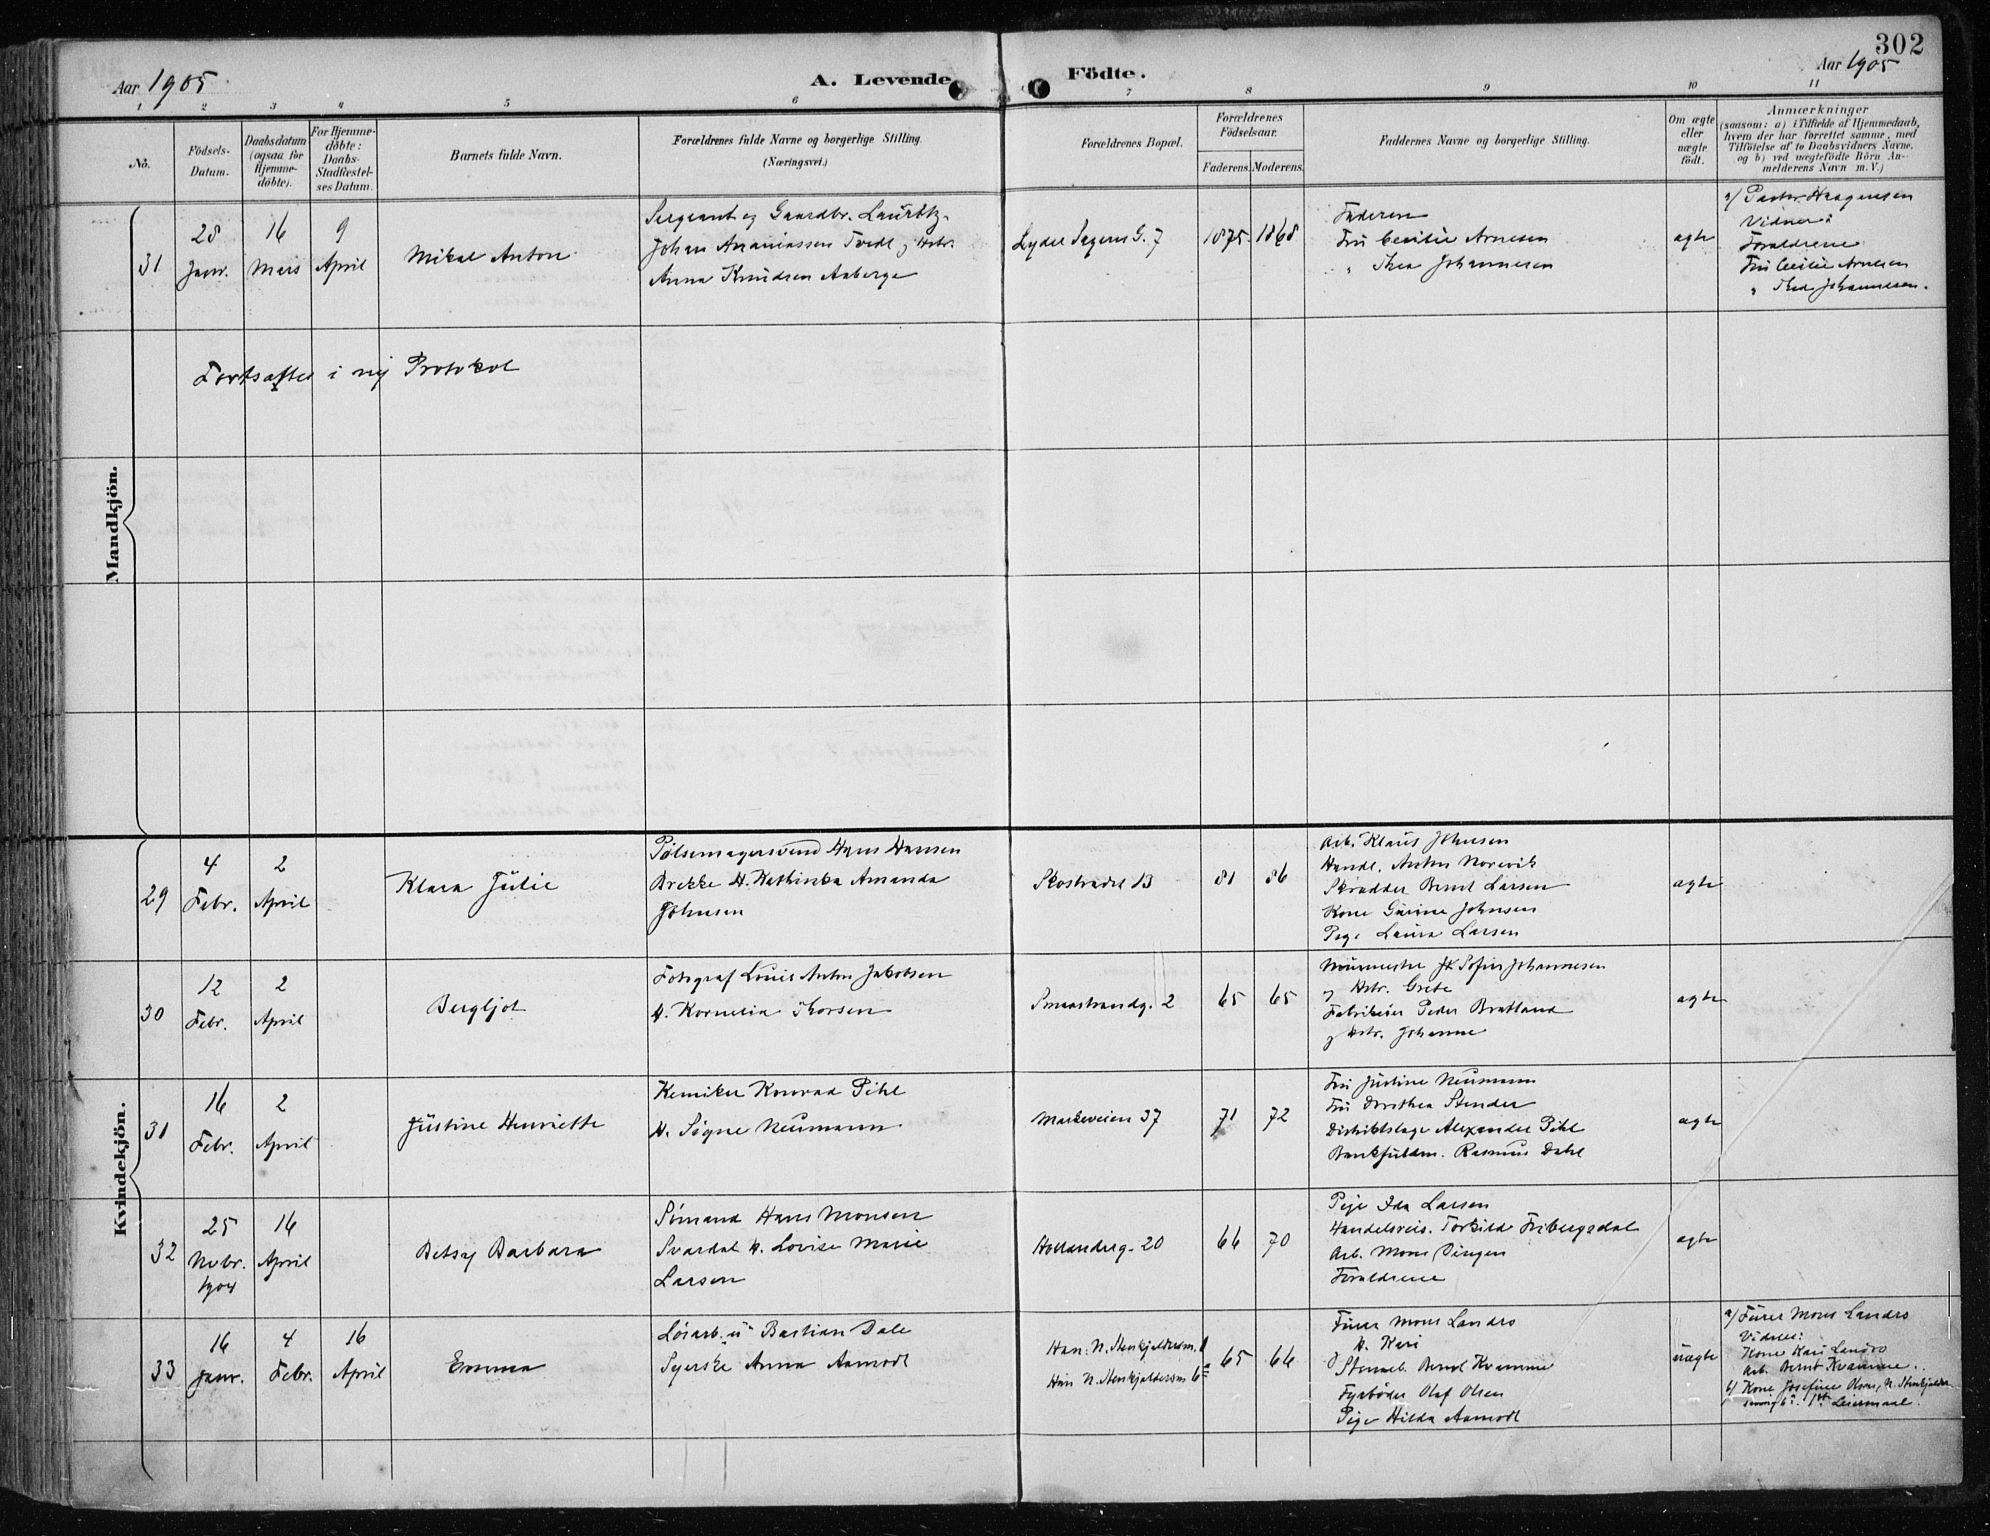 302
Aar 1905
A. Levende Födte.
Aar 1905
1 2 3 4 5 6 7 8 9 10 11
No.
Födsels-
Datum.
Daabsdatum
(ogsaa for
Hjemme-
döbte).
For Hjemme-
döbte:
Daabs-
Stadfæstel-
ses Datum.
Barnets fulde Navn.
Forældrenes fulde Navne og borgerlige Stilling.
(Næringsvei.)
Forældrenes Bopæl.
Forældrenes
Fødselsaar.
Faderens. Moderens.
Faddernes Navne og borgerlige Stilling.
Om ægte
eller
uægte
födt.
Anmærkninger
(saasom: a) i Tilfælde af Hjemmedaab,
hvem der har forrettet samme, med
Tilföielse af to Daabsvidners Navne,
og b) ved uægtefödte Börn An-
melderens Navn m. V.)
Mandkjön.
31
28
Janr.
16
Mars
9
April
Mikal Anton
Sergeant og Gaardbr. Lauritz
Johan Ananiassen Tvedt og Hstr.
Anna Knudsen Aaberge
Lyder Sagens G. 7
1875
1868
Faderen
Fru Cecilie Arnesen
" Thea Johannesen
ægte
a/ Pastor Haagensen
Vidner:
Forældrene
Fru Cecilie Arnesen
" Thea Johannesen.
Fortsættes i ny Protokol
Kvindekjön.
29
4
Febr.
2
April
Klara Julie
Pølsemagersvend Hans Hansen
Brekke H. Kathinka Amanda
Johnsen
Skostrædet 13
81
86
Arb. Klaus Johnsen
Handl. Anton Norevik
Skrædder Bernt Larsen
Kone Gurine Johnsen
Pige Laura Larsen
ægte
30
12
Febr.
2
April
Bergljot
Fotograf Louis Anton Jakobsen
H. Kornelia Thorsen
Smaastrandg. 2
65
65
Murmester Sofus Johannesen
og Hstr. Grete
Fabrikeier Peder Bratland
og Hstr. Johanne
ægte
31
16
Febr.
2
April
Justine Henriette
Kemiker Konrad Pihl
H. Signe Neumann
Markeveien 37
71
72
Fru Justine Neumann
Fru Dorothea Stender
Distriktslæge Alexander Pihl
Bankfuldm. Rasmus Dahl
ægte
32
25
Novbr.
1904
16
April
Betsy Barbara
Sømand Hans Monsen
Svardal H. Lovise Marie
Larsen
Hollenderg. 20
66
70
Pige Ida Larsen
Handelsreis. Torkilde Fribergsdal
Arb. Mons
Forældrene
ægte
33
16
Janr.
4
Febr.
16
April
Emma
Løsarb. u Bastian Dale
Syerske Anna Aamodt
Han: N. Stenkjeldersm.
Hun N. Stenkjeldersm 6
65
66
Furer Mons Landro
H. Kari
Bernt Kvamme
Fyrbøder Olaf Olsen
Pige Hilda Aamodt
uægte
a/ Furer Mons Landro
Vidner:
Kone Kari Landro
Arb. Bernt Kvamme.
b/ Kone Josefine Olsen, N. Stenkjelder
Leiermaal.